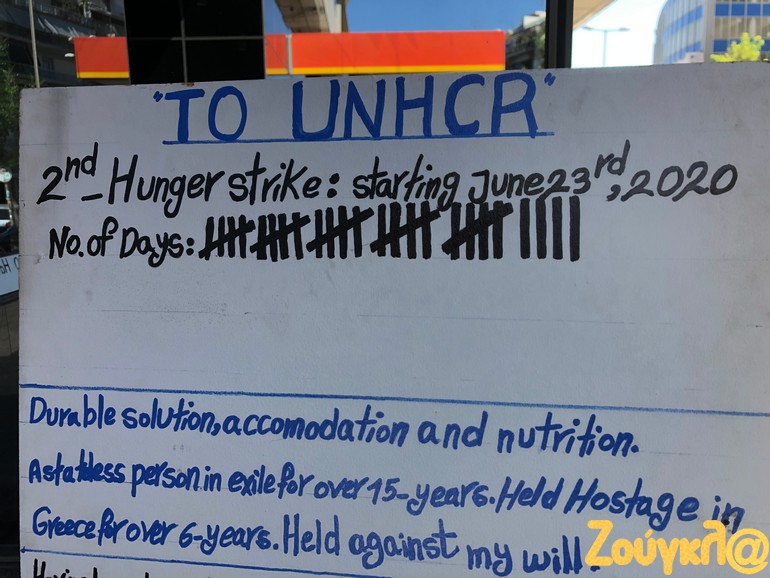 "TO UNHCR"
2nd - Hunger strike: starting June 23rd, 2020
No. of Days:
Durable solution, accomodation and nutrition.
A statless person in exile for over 15-years. Held Hostage in
Greece for over 6-years. Held against my will.
Ζούγκλ@